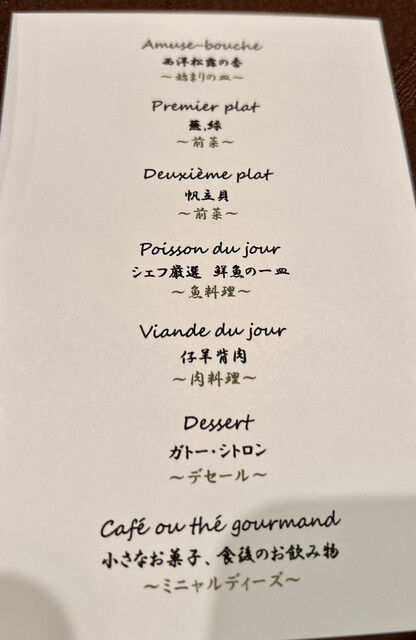 Amuse-bouche
西洋松露の香
～始まりの皿～
Premier plat
蕪,緑
～前菜～
Deuxième plat
帆立貝
～前菜～
Poisson du jour
シェフ厳選 鮮魚の一皿
～魚料理～
Viande du jour
仔羊背肉
～肉料理～
Dessert
ガトー・シトロン
～デセール～
Café ou thé gourmand
小さなお菓子、食後のお飲み物
～ミニャルディーズ～